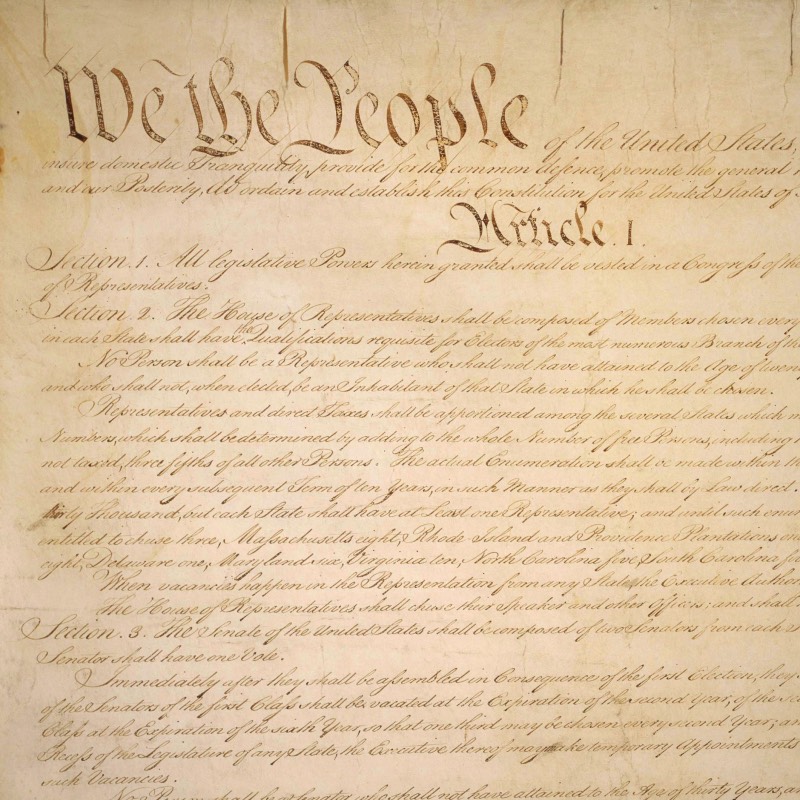 We the People of the United States,
insure domestic Tranquility, provide for the common defence, promote the general
and our Posterity, do ordain and establish this Constitution for the United States of
Article. I.
Section. 1. All legislative Powers herein granted shall be vested in a Congress of the
of Representatives.
Section. 2. The House of Representatives shall be composed of Members chosen every
in each State shall have the Qualifications requisite for Electors of the most numerous Branch of the
No Person shall be a Representative who shall not have attained to the Age of twenty
and who shall not, when elected, be an Inhabitant of that State in which he shall be chosen.
Representatives and direct Taxes shall be apportioned among the several States which
Numbers, which shall be determined by adding to the whole Number of free Persons, including
not taxed, three fifths of all other Persons. The actual Enumeration shall be made within
and within every subsequent Term of ten Years, in such Manner as they shall by Law direct.
thirty Thousand, but each State shall have at Least one Representative; and until such
entitled to chuse three, Massachusetts eight, Rhode Island and Providence Plantations
eight, Delaware one, Maryland six, Virginia ten, North Carolina five, South Carolina
When vacancies happen in the Representation from any State, the Executive
The House of Representatives shall chuse their Speaker and other Officers; and shall
Section. 3. The Senate of the United States shall be composed of two Senators from each
Senator shall have one Vote.
Immediately after they shall be assembled in Consequence of the first Election, they
of the Senators of the first Class shall be vacated at the Expiration of the second Year, of the
Class at the Expiration of the sixth Year, so that one third may be chosen every second Year;
Recess of the Legislature of any State, the Executive thereof may make temporary Appointments
such Vacancies.
No Person shall be a Senator who shall not have attained to the Age of thirty Years,